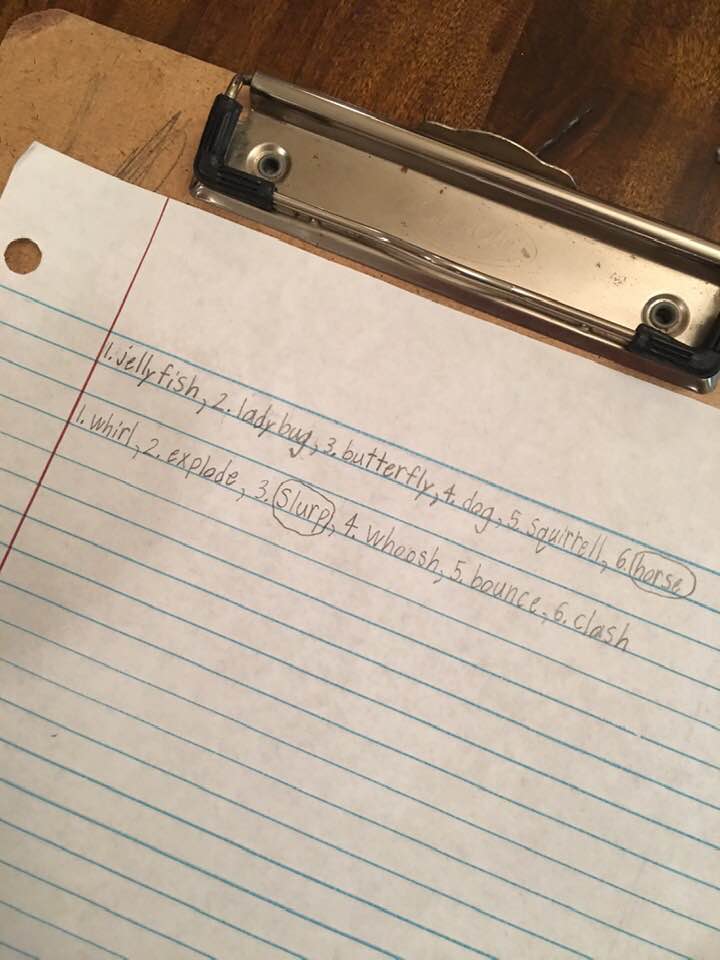 1. jellyfish, 2. ladybug, 3. butterfly, 4. dog, 5. squirrell, 6. horse
1. whirl, 2. explode, 3. Slurp, 4. whoosh, 5. bounce, 6. clash